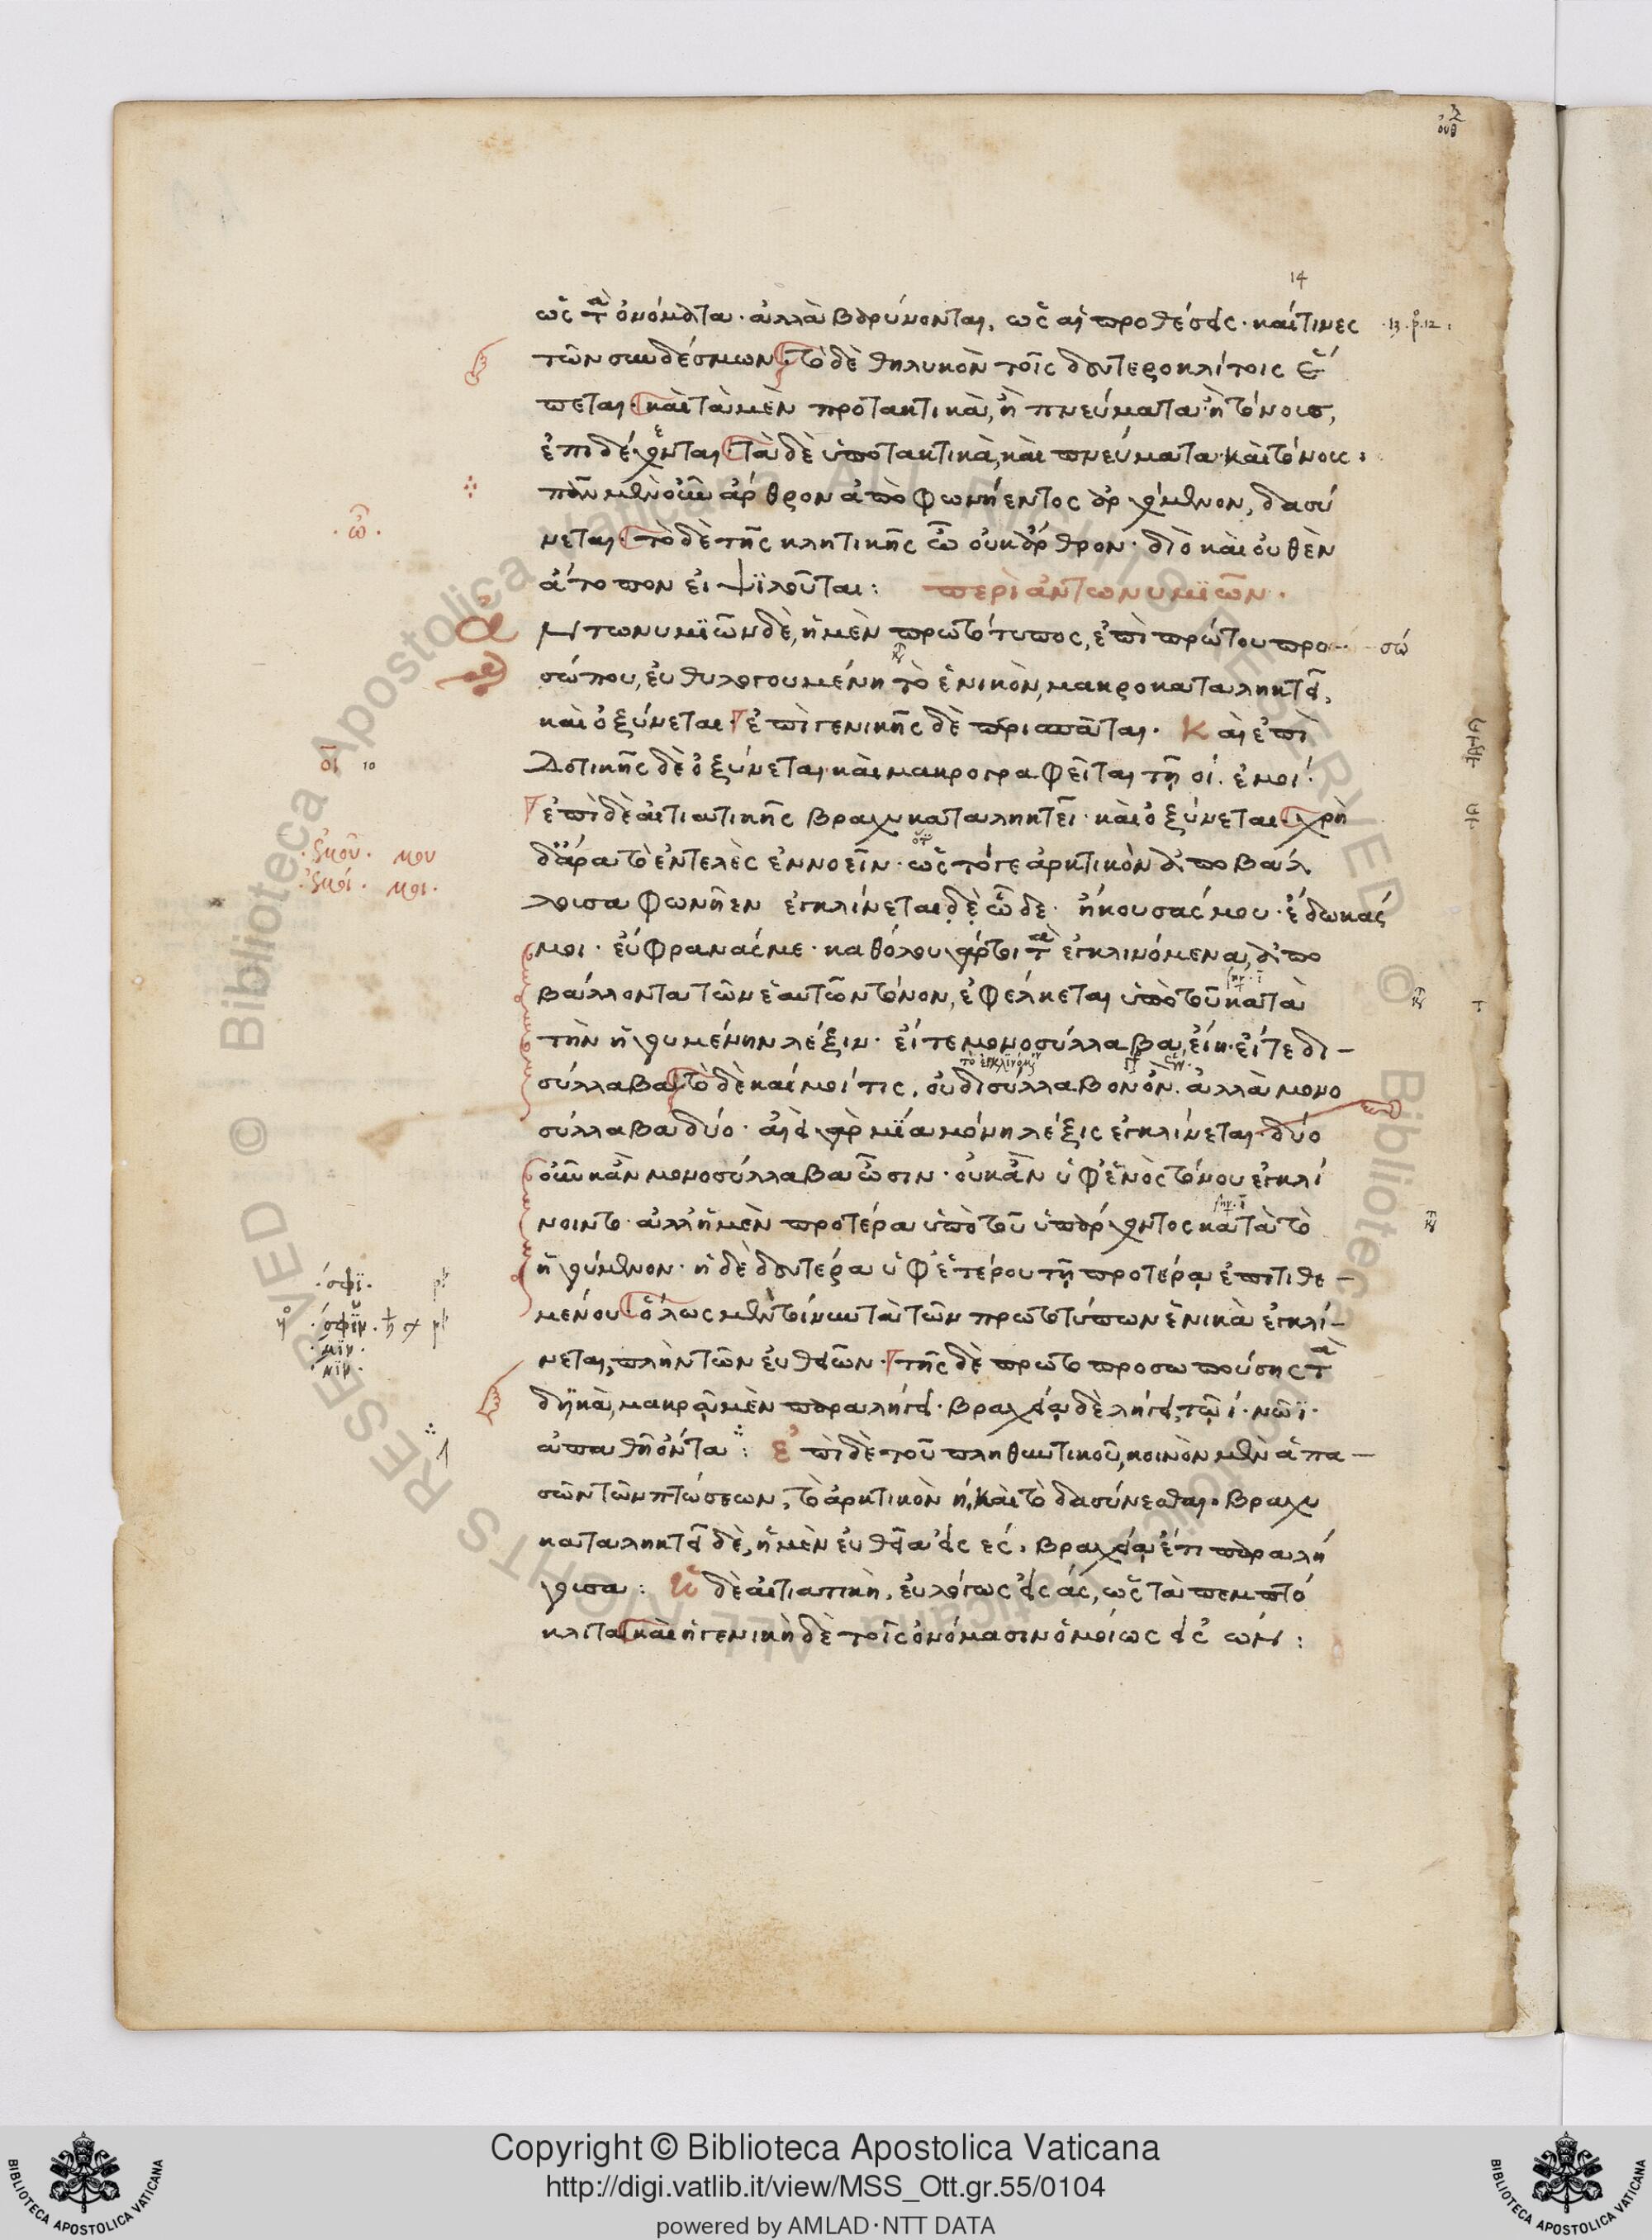 14
ὡς τὰ ὀνόματα· ἀλλὰ βαρύνονται, ὡς αἱ προθέσεις· καί τινες
τῶν συνδέσμων· τὸ δὲ θηλυκὸν τοῖς δευτεροκλίτοις ἕ
πεται· καὶ τὰ μὲν προτακτικὰ, ἢ πνεύματα ἢ τόνους,
ἐπιδέχονται· τὰ δὲ ὑποτακτικὰ, καὶ πνεύματα καὶ τόνους·
πᾶν μὲν οὖν ἄρθρον ἀπὸ φωνήεντος ἀρχόμενον, δασύ
νεται· τὸ δὲ τῆς κλητικῆς ὦ οὐκ ἄρθρον· διὸ καὶ οὐθὲν
ἄτοπον εἰ ψιλοῦται: περὶ ἀντωνυμϊῶν.
Ἀντωνυμϊῶν δὲ, ἡ μὲν πρωτότυπος, ἐπὶ πρώτου προ
σώπου, εὐθυλογουμένη τὸ ἑνικὸν, μακροκαταληκτεῖ,
καὶ ὀξύνεται· ἐπὶ γενικῆς δὲ περισπᾶται. Καὶ ἐπὶ
Δοτικῆς δὲ ὀξύνεται καὶ μακρογραφεῖται τῇ οἱ. ἐμοί·
ἐπὶ δὲ αἰτιατικῆς βραχυκαταληκτεῖ· καὶ ὀξύνεται· χρὴ
δ' ἄρα τὸ ἐντελὲς ἐννοεῖν· ὡς τό γε ἀρκτικὸν ἀποβάλ
λουσα φωνῆεν ἐγκλίνεται δὲ ὧδε· ἤκουσάς μου· ἔδωκάς
μοι· εὔφρανάς με· καθόλου γάρ τοι τὰ ἐγκλινόμενα, ἀπο
βάλλοντα τῶν ἑαυτῶν τόνον, ἐφέλκεται ὑπὸ τοῦ κατὰ
τὴν ἡγουμένην λέξιν· εἴτε μονοσύλλαβα, εἴη· εἴτε δι-
σύλλαβα· τὸ δὲ καί μοί τις, οὐ δισύλλαβον ὂν. ἀλλὰ μονο
σύλλαβα δύο· ἀεὶ γὰρ μΐα μόνη λέξις ἐγκλίνεται· δύο
οὖν κἂν μονοσύλλαβα ὦσιν· οὐκ ἂν ὑφ' ἑνὸς τόνου ἐγκλί
νοιντο· ἀλλ' ἡ μὲν προτέρα ὑπὸ τοῦ ὑπάρχοντος κατὰ τὸ
ἡγούμενον· ἡ δὲ δευτέρα ὑφ' ἑτέρου τῇ προτέρᾳ ἐπιτιθε-
μένου· ὅλως μέντοι νυν τὰ τῶν πρωτοτύπων ἑνικὰ ἐγκλί-
νεται, πλὴν τῶν εὐθειῶν· τῆς δὲ πρωτοπροσωπούσης τὰ
δυϊκὰ, μακρᾷ μὲν παραλήγει· βραχείᾳ δὲ λήγει, τῷ ι· νῶϊ·
ἀπαθῆ ὄντα: Ἐπὶ δὲ τοῦ πληθυντικοῦ, κοινὸν μὲν ἁπα-
σῶν τῶν πτώσεων, τὸ ἀρκτικὸν η, καὶ τὸ δασύνεσθαι· βραχυ
καταληκτεῖ δὲ, ἡ μὲν εὐθεῖα εἰς ες, βραχείᾳ ἔτι παραλή
γουσα: Ἡ δὲ αἰτιατικὴ, εὐλόγως εἰς ας, ὡς τὰ πεμπτό
κλιτα· καὶ ἡ γενικὴ δὲ τοῖς ὀνόμασιν ὁμοίως εἰς ων:
·ὦ·
οι
10
·ἐμοῦ· μου
·ἐμοί· μοι·
·σφϊ·
·σφϊν·
·μϊν·
·νϊν·
σώ
Copyright © Biblioteca Apostolica Vaticana
http://digi.vatlib.it/view/MSS_Ott.gr.55/0104
powered by AMLAD·NTT DATA
BIBLIOTECA APOSTOLICA VATICANA
BIBLIOTECA APOSTOLICA VATICANA
© Biblioteca Apostolica Vaticana ALL RIGHTS RESERVED